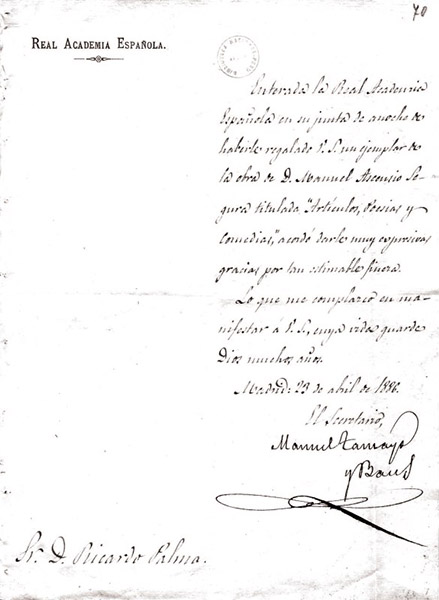 70
REAL ACADEMIA ESPAÑOLA.
Enterada la Real Academia
Española en su junta de anoche de
haberle regalado V. S. un ejemplar de
la obra de D. Manuel Ascensio Se-
gura titulada "Artículos, Poesias y
comedias," acordó darle muy expresivas
gracias por tan estimable fineza.
Lo que me complazco en ma-
nifestar á V. S., cuya vida guarde
Dios muchos años.
Madrid: 23 de abril de 1886.
El Secretario,
Manuel Tamayo
y Baus
Sr. D. Ricardo Palma.